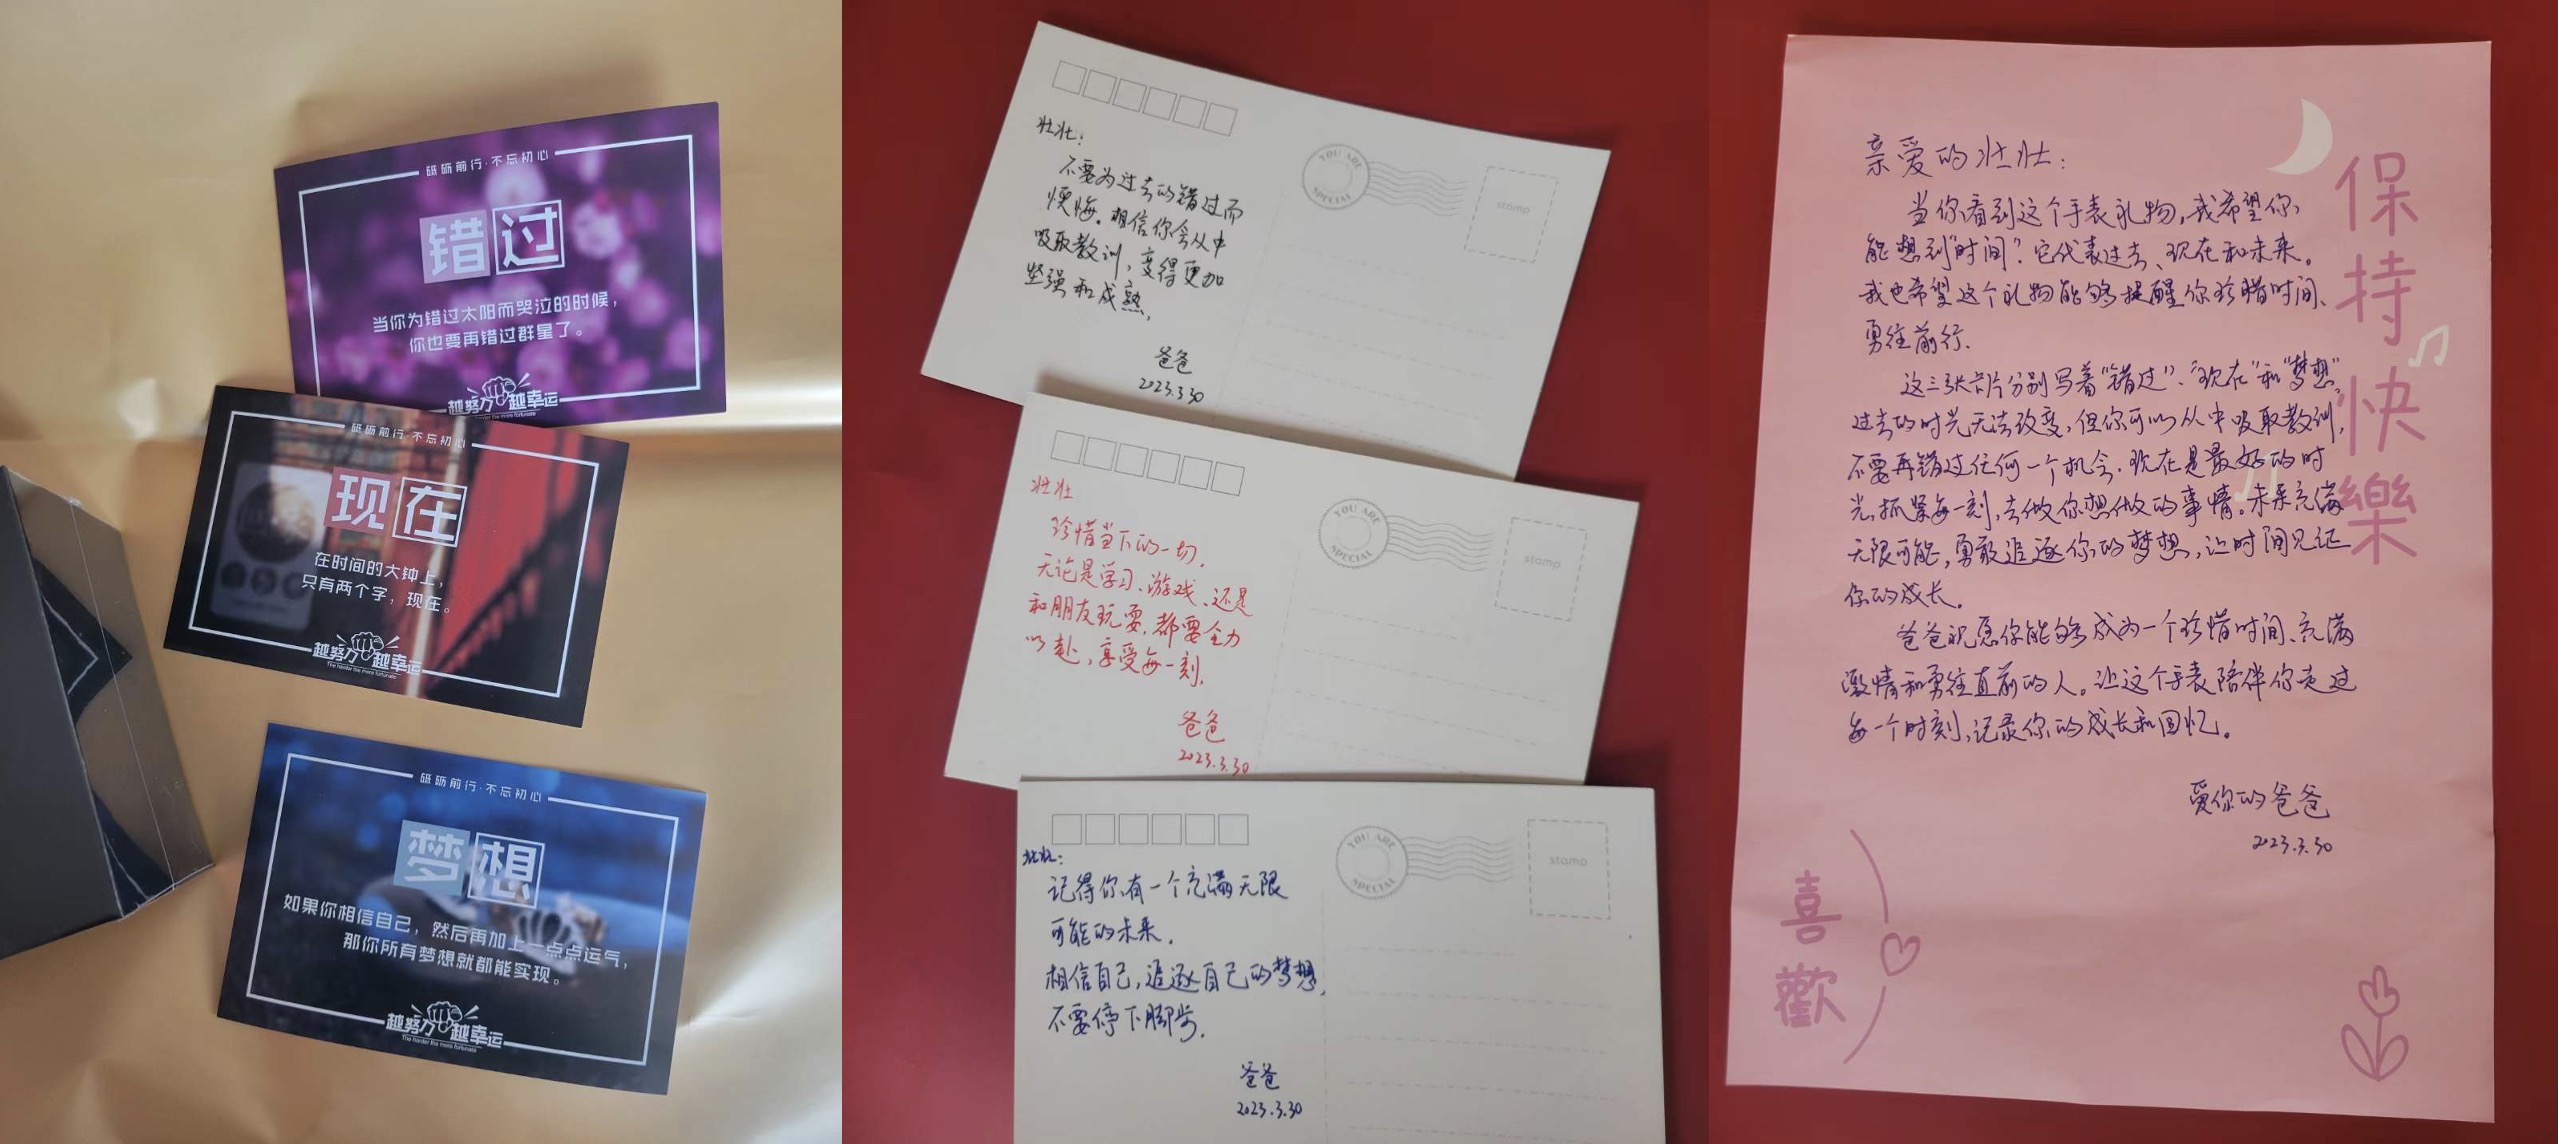 砥砺前行·不忘初心
错过
当你为错过太阳而哭泣的时候，
你也要再错过群星了。
越努力 越幸运
The harder the more fortunate
砥砺前行·不忘初心
现在
在时间的大钟上，
只有两个字，现在。
越努力 越幸运
The harder the more fortunate
砥砺前行·不忘初心
梦想
如果你相信自己，然后再加上一点点运气，
那你所有梦想就都能实现。
越努力 越幸运
The harder the more fortunate
壮壮：
不要为过去的错过而
懊悔。相信你会从中
吸取教训，变得更加
坚强和成熟。
爸爸
2023.3.30
YOU ARE SPECIAL
stamp
壮壮
珍惜当下的一切，
无论是学习、游戏、还是
和朋友玩耍，都要全力
以赴，享受每一刻。
爸爸
2023.3.30
YOU ARE SPECIAL
stamp
壮壮：
记得你有一个充满无限
可能的未来，
相信自己，追逐自己的梦想，
不要停下脚步。
爸爸
2023.3.30
YOU ARE SPECIAL
stamp
亲爱的壮壮：
当你看到这个手表礼物，我希望你
能想到"时间"？它代表过去、现在和未来。
我也希望这个礼物能够提醒你珍惜时间、
勇往前行.
这三张卡片分别写着"错过"、"现在"和"梦想"，
过去的时光无法改变，但你可以从中吸取教训，
不要再错过任何一个机会。现在是最好的时
光，抓紧每一刻，去做你想做的事情。未来充满
无限可能，勇敢追逐你的梦想，让时间见证
你的成长。
爸爸祝愿你能够成为一个珍惜时间、充满
激情和勇往直前的人。让这个手表陪伴你走过
每一个时刻，记录你的成长和回忆。
爱你的爸爸
2023.3.30
保持快樂
喜歡